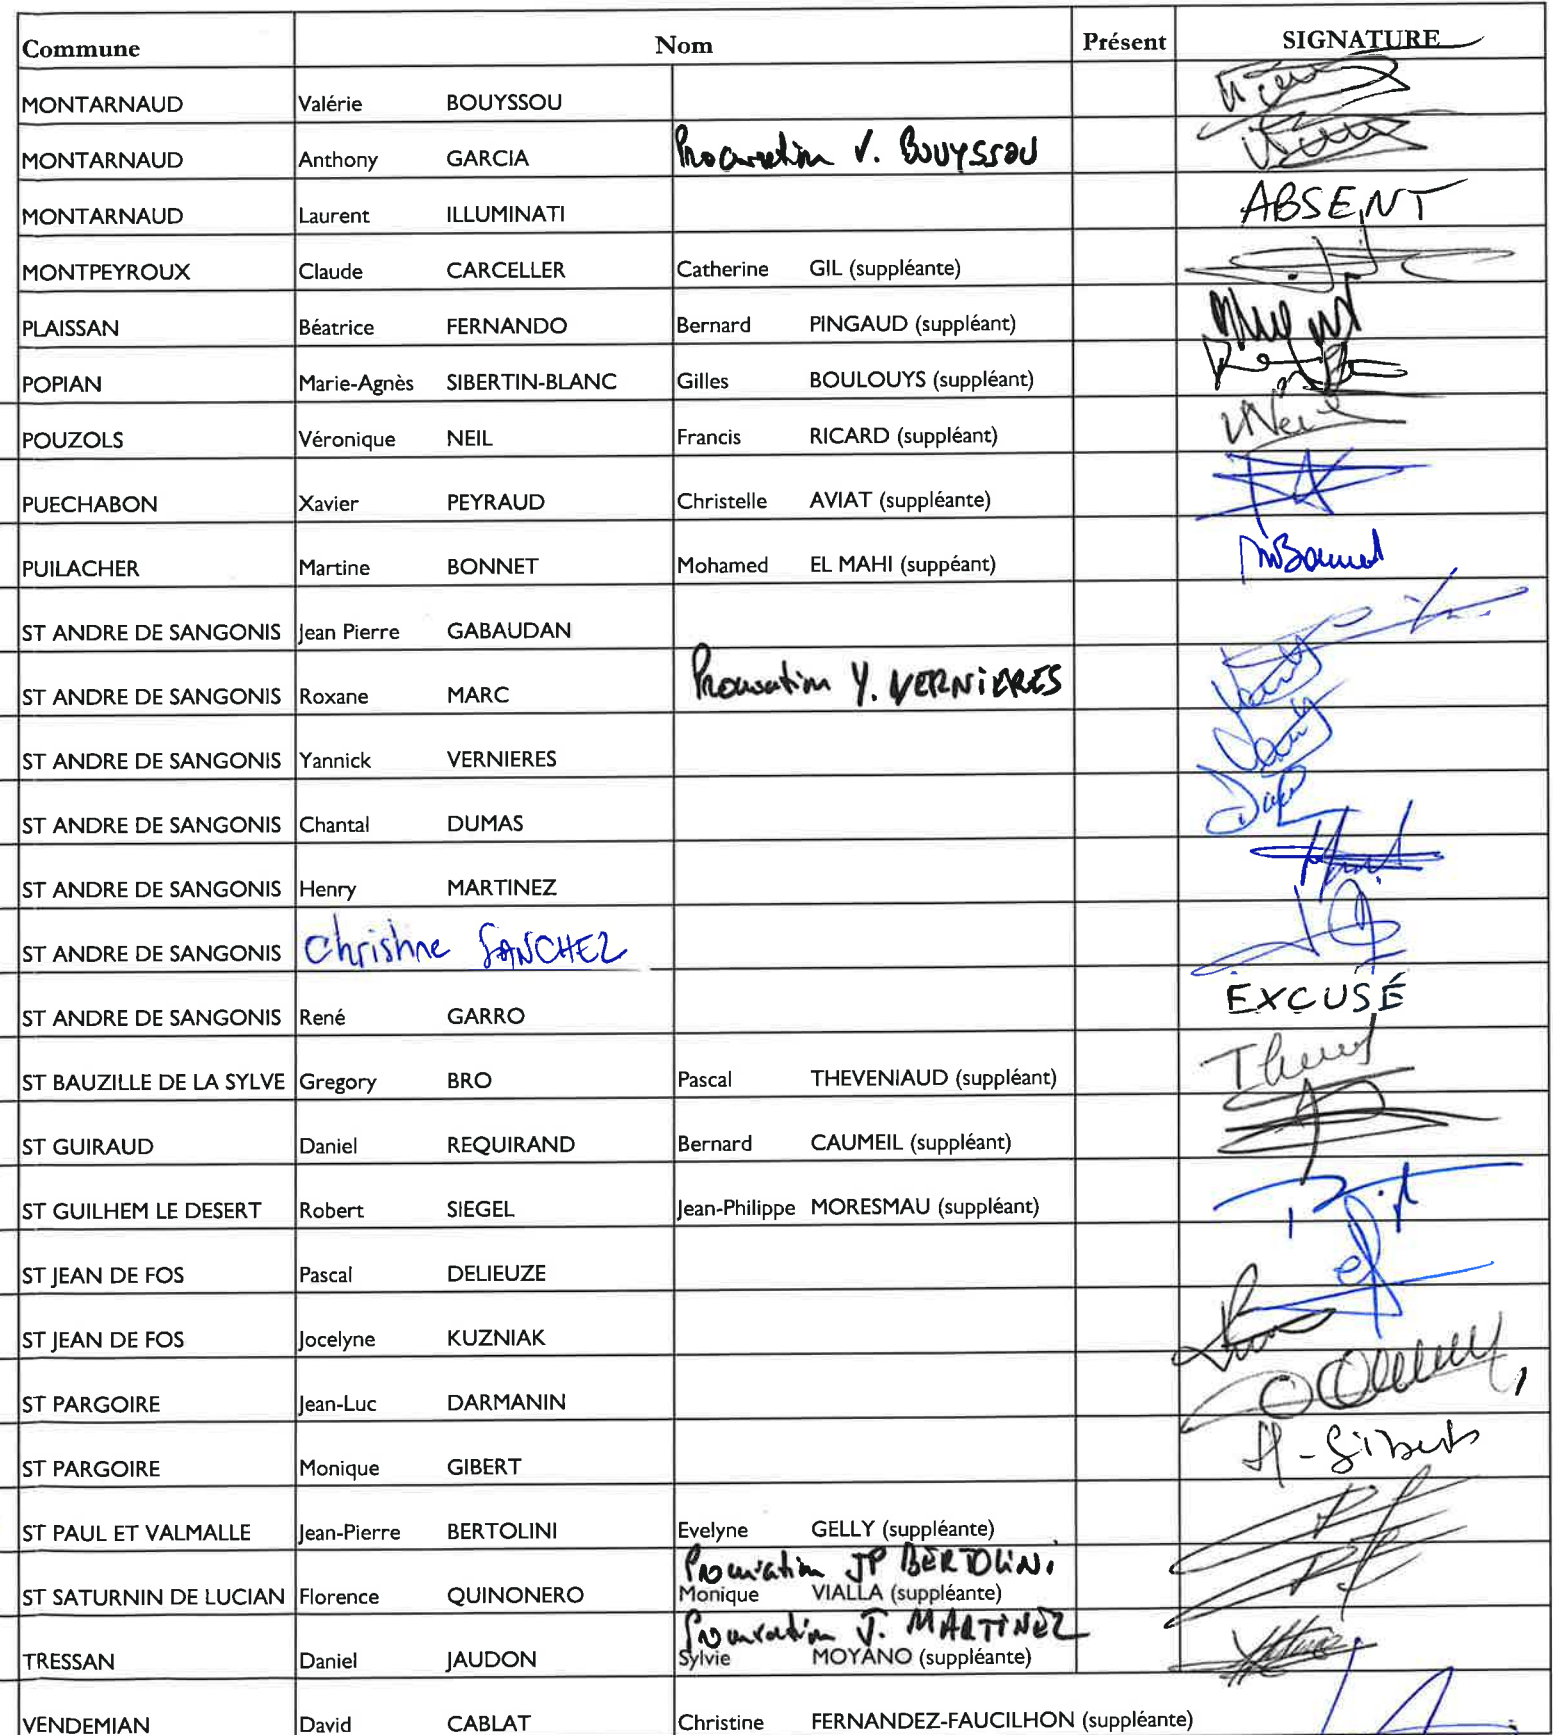 Commune Nom Présent SIGNATURE
MONTARNAUD Valérie BOUYSSOU
MONTARNAUD Anthony GARCIA Procuration V. BOUYSSOU
MONTARNAUD Laurent ILLUMINATI ABSENT
MONTPEYROUX Claude CARCELLER Catherine GIL (suppléante)
PLAISSAN Béatrice FERNANDO Bernard PINGAUD (suppléant)
POPIAN Marie-Agnès SIBERTIN-BLANC Gilles BOULOUYS (suppléant)
POUZOLS Véronique NEIL Francis RICARD (suppléant) VNeil
PUECHABON Xavier PEYRAUD Christelle AVIAT (suppléante)
PUILACHER Martine BONNET Mohamed EL MAHI (suppéant) MBonnet
ST ANDRE DE SANGONIS Jean Pierre GABAUDAN
ST ANDRE DE SANGONIS Roxane MARC Procuration Y. VERNIERES
ST ANDRE DE SANGONIS Yannick VERNIERES
ST ANDRE DE SANGONIS Chantal DUMAS
ST ANDRE DE SANGONIS Henry MARTINEZ
ST ANDRE DE SANGONIS Christine SANCHEZ
ST ANDRE DE SANGONIS René GARRO EXCUSÉ
ST BAUZILLE DE LA SYLVE Gregory BRO Pascal THEVENIAUD (suppléant)
ST GUIRAUD Daniel REQUIRAND Bernard CAUMEIL (suppléant)
ST GUILHEM LE DESERT Robert SIEGEL Jean-Philippe MORESMAU (suppléant)
ST JEAN DE FOS Pascal DELIEUZE
ST JEAN DE FOS Jocelyne KUZNIAK
ST PARGOIRE Jean-Luc DARMANIN
ST PARGOIRE Monique GIBERT M-Gibert
ST PAUL ET VALMALLE Jean-Pierre BERTOLINI Evelyne GELLY (suppléante)
Procuration JP BERTOLINI
ST SATURNIN DE LUCIAN Florence QUINONERO Monique VIALLA (suppléante)
Procuration J. MARTINEZ
TRESSAN Daniel JAUDON Sylvie MOYANO (suppléante)
VENDEMIAN David CABLAT Christine FERNANDEZ-FAUCILHON (suppléante)